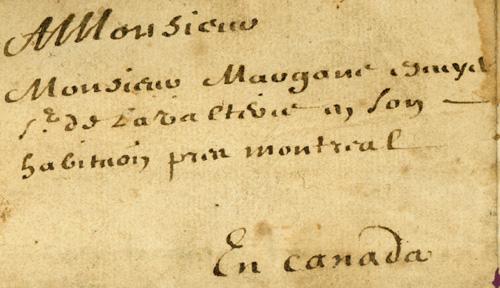 A Monsieur
Monsieur Margane escuyer
sr. de Lavaltrie en son
habituoin pres montreal
En canada